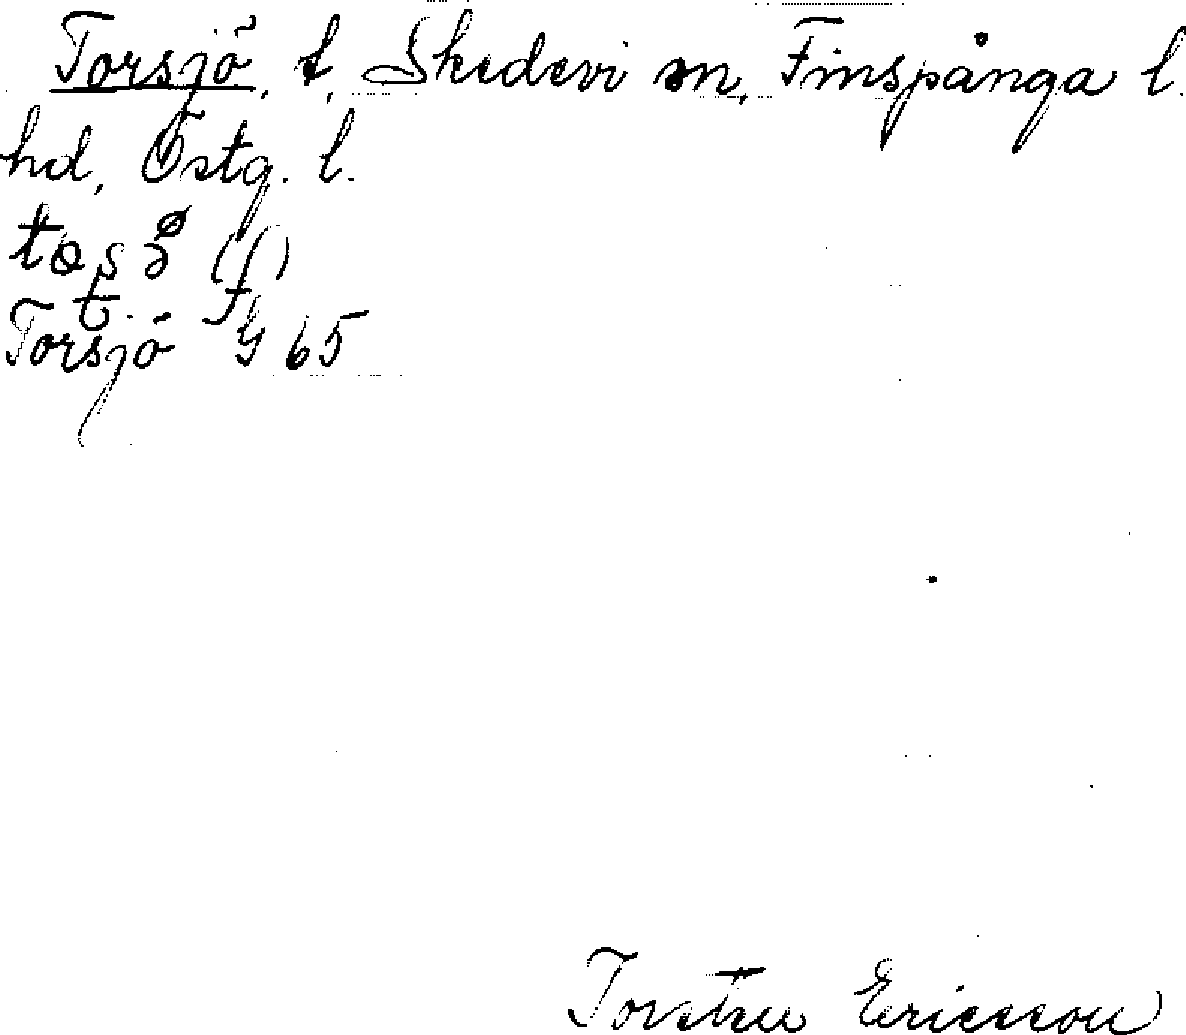 Torsjö, t, Skedevi sn, Finspånga l.
hd, Östg. l.
(f)
t. f
Torsjö G 65
Torsten Ericsson